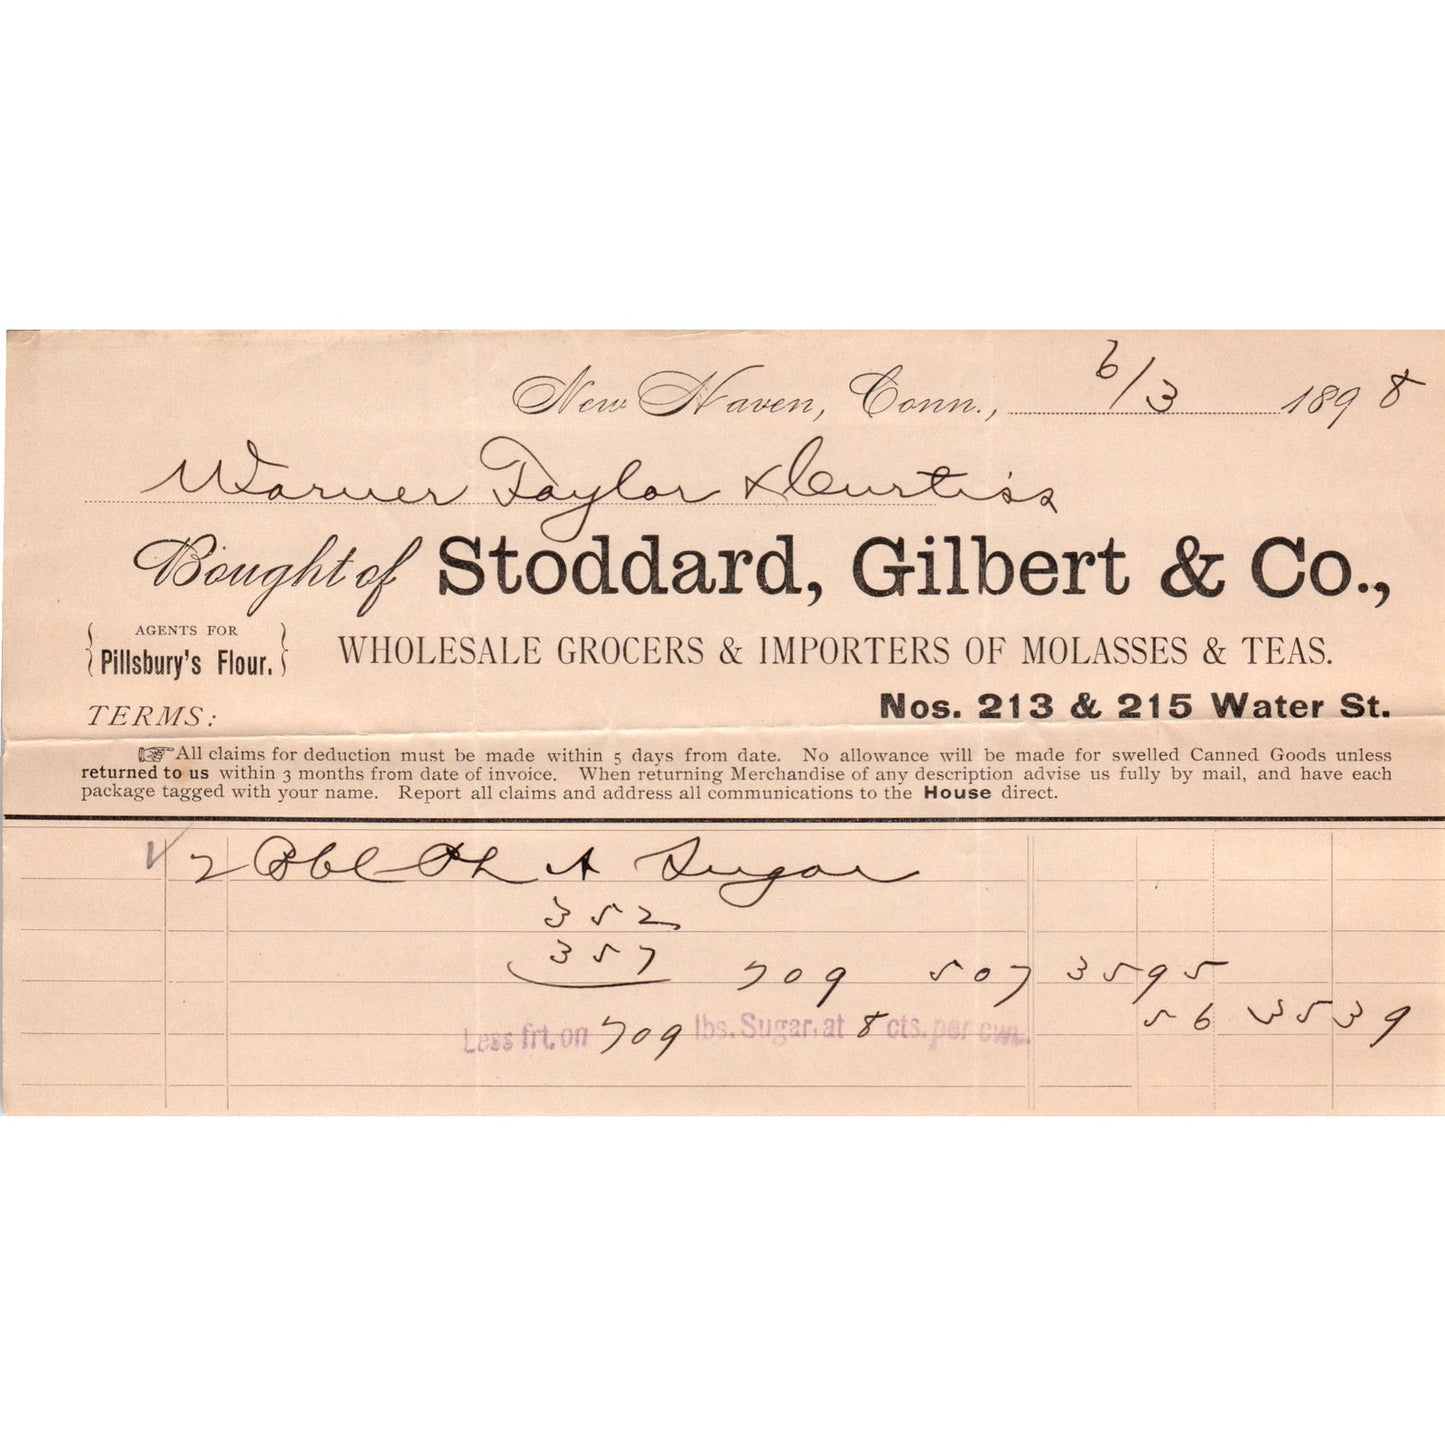 New Haven, Conn., 6/3 1898
Warner Taylor & Curtiss
Bought of Stoddard, Gilbert & Co.,
AGENTS FOR
Pillsbury's Flour.
WHOLESALE GROCERS & IMPORTERS OF MOLASSES & TEAS.
Nos. 213 & 215 Water St.
TERMS:
☞All claims for deduction must be made within 5 days from date. No allowance will be made for swelled Canned Goods unless
returned to us within 3 months from date of invoice. When returning Merchandise of any description advise us fully by mail, and have each
package tagged with your name. Report all claims and address all communications to the House direct.
2 Bbl Ph A Sugar
352
357 709 507 3595
Less frt. on 709 lbs. Sugar, at 8 cts. per cwt. 56 3539